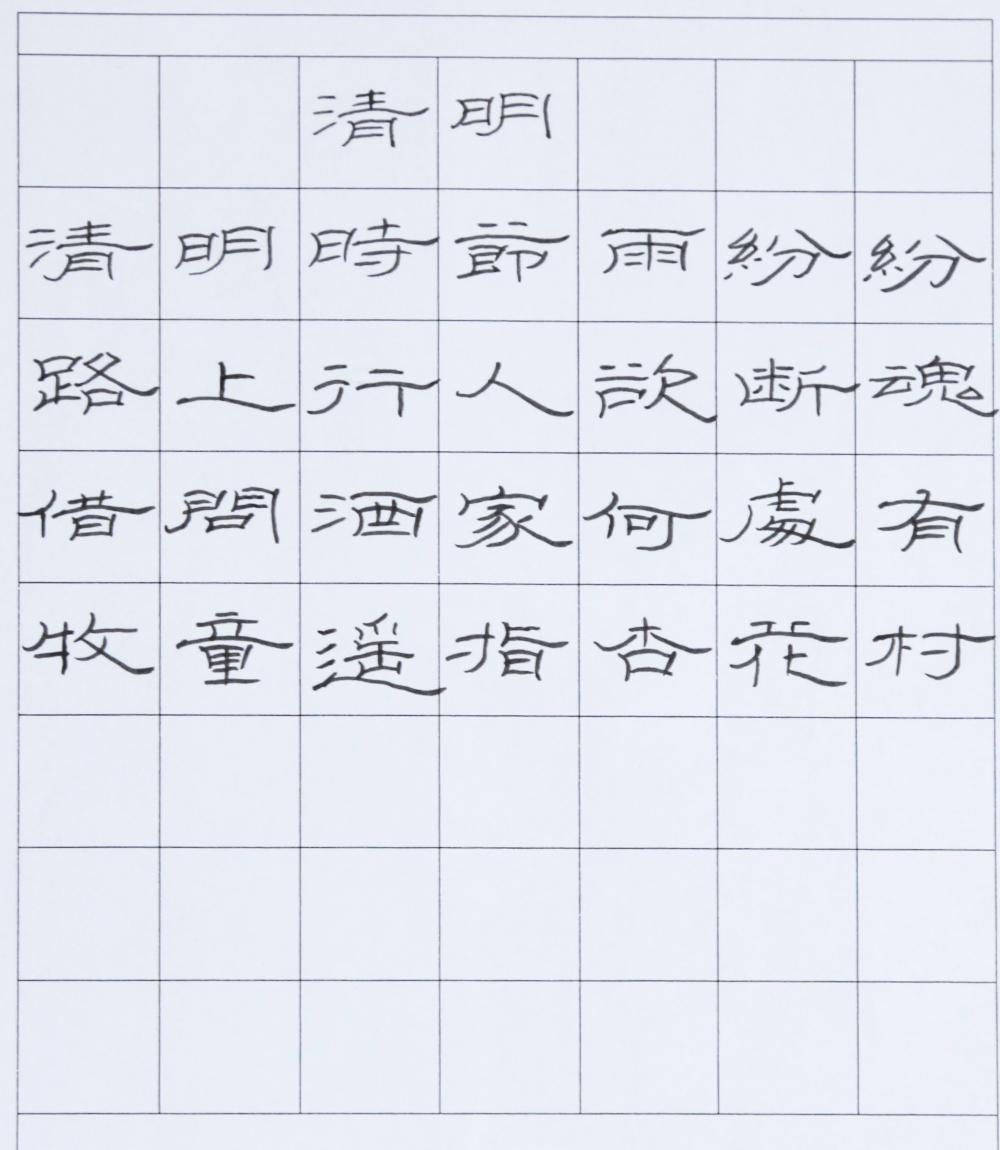 清明
清明時節雨紛紛
路上行人欲断魂
借問酒家何處有
牧童遥指杏花村